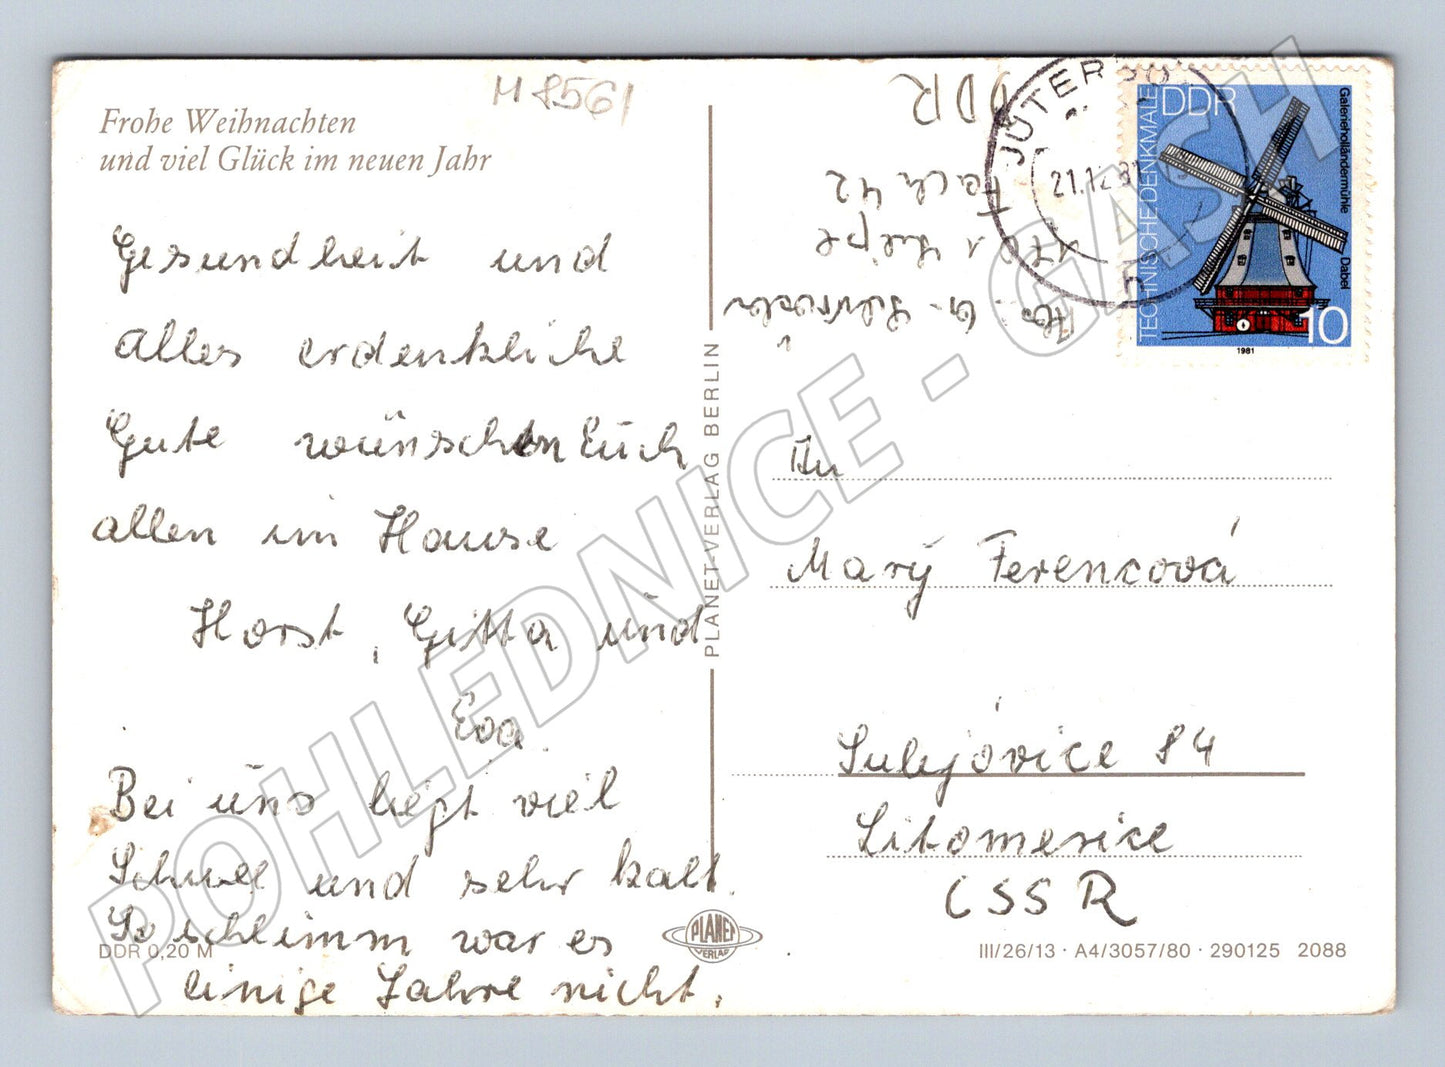 M 8561
Frohe Weihnachten
und viel Glück im neuen Jahr
Gesundheit und
alles erdenkliche
Gute wünschen Euch
allen im Hause
Horst, Gitta und
Eva.
Bei uns liegt viel
Schnee und sehr kalt.
So schlimm war es
einige Jahre nicht.
DDR 0,20 M
PLANET-VERLAG BERLIN
PLANET
VERLAG
DDR
Fach 42
JÜTERBOG
21.12.81
h
DDR
TECHNISCHE DENKMALE
Galerieholländermühle Dabel
10
1981
An
Marý Ferencová
Sulejovice 84
Litomerice
CSSR
III/26/13 · A4/3057/80 · 290125 2088
POHLEDNICE - GASH